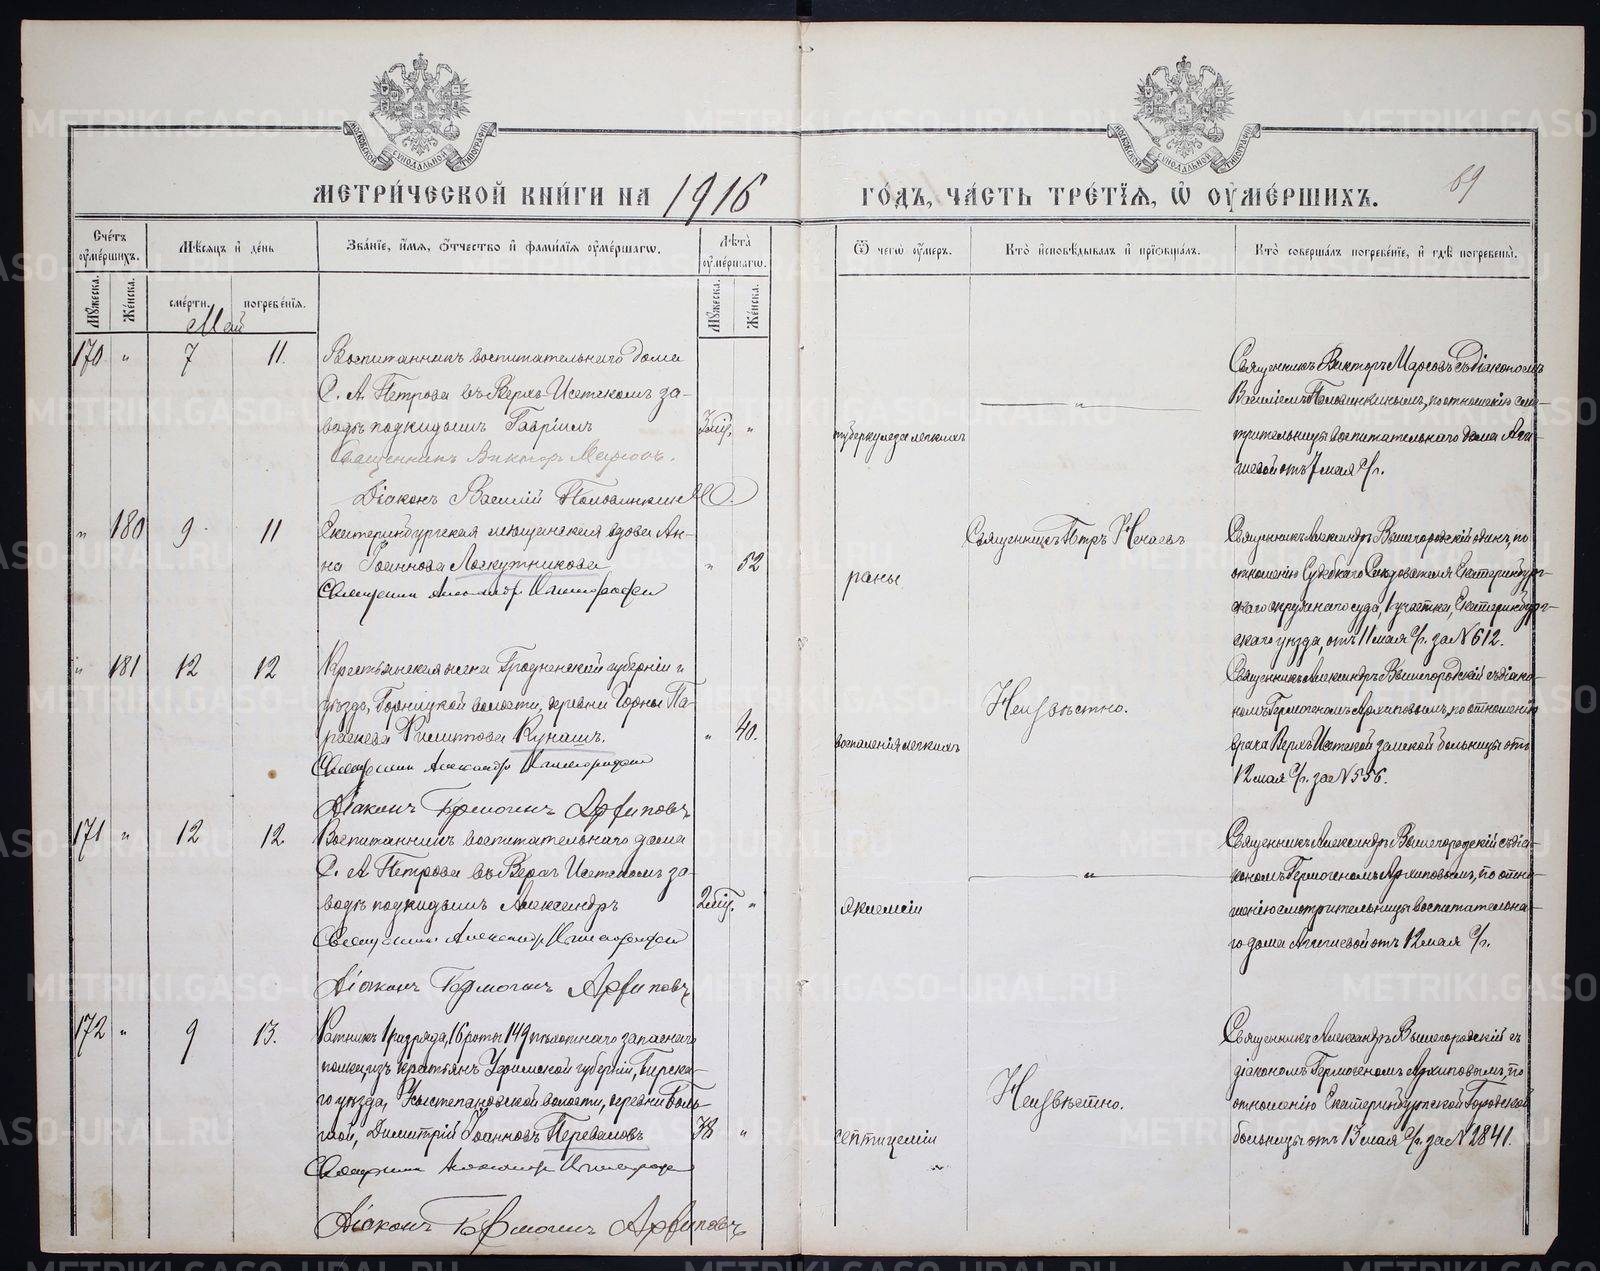 МОСКОВСКОЙ СУНОДАЛЬНОЙ ТИПОГРАФІИ
МОСКОВСКОЙ СУНОДАЛЬНОЙ ТИПОГРАФІИ
МЕТРИ́ЧЕСКОЙ КНИ́ГИ НА 1916
ГО́ДЪ, ЧА́СТЬ ТРЕ́ТІѦ, Ѡ҆ ОУ҆МЕ́РШИХЪ.
69
Сче́тъ оу҆ме́ршихъ.
Мѣ́сѧцъ и҆ де́нь
Зва́нїе, и҆́мѧ, ѻ҆́тчество и҆ фами́лїѧ оу҆ме́ршагѡ.
Лѣ́та оу҆ме́ршагѡ.
Ѿ чегѡ̀ оу҆́меръ.
Кто̀ и҆сповѣ́дывалъ и҆ прїѡбща́лъ.
Кто̀ соверша́лъ погребе́нїе, и҆ гдѣ̀ погребены̀.
Му́жеска.
Же́нска.
сме́рти.
погребе́нїѧ.
Му́жеска.
Же́нска.
Май
170 " 7 11.
Воспитанникъ воспитательнаго дома
С. А. Петрова въ Верхъ-Исетскомъ за-
водѣ подкидышъ Гавріилъ
3 мѣс. "
Священникъ Викторъ Марсовъ.
Діаконъ Василій
туберкулеза легкихъ
"
Священникъ Викторъ Марсовъ съ діакономъ
Василіемъ по отношенію смо-
трительницы воспитательнаго дома
отъ 7 мая с/г.
" 180 9 11
Екатеринбургская мѣщанская вдова Ан-
на Іоаннова Лоскутникова
" 52
Священникъ Александръ Вышегородскій
раны
Священникъ Петръ Нечаевъ
Священникъ Александръ Вышегородскій одинъ, по
отношенію Судебнаго Слѣдователя Екатеринбург-
скаго окружнаго суда, 1 участка, Екатеринбург-
скаго уѣзда, отъ 11 мая с/г. за № 612.
" 181 12 12
Крестьянская жена Гродненской губерніи и
уѣзда, Горницкой волости, деревни Горны Па-
раскева Филиппова Кунашъ.
" 40.
Священникъ Александръ Вышегородскій
Діаконъ Гермогенъ Архиповъ
воспаленія легкихъ
Неизвѣстно.
Священникъ Александръ Вышегородскій съ діако-
номъ Гермогеномъ Архиповымъ, по отношенію
врача Верхъ-Исетской земской больницы отъ
12 мая с/г. за № 556.
171 " 12 12
Воспитанникъ воспитательнаго дома
С. А. Петрова въ Верхъ-Исетскомъ за-
водѣ подкидышъ Александръ
2 мѣс. "
Священникъ Александръ Вышегородскій
Діаконъ Гермогенъ Архиповъ
"
Священникъ Александръ Вышегородскій съ діа-
кономъ Гермогеномъ Архиповымъ, по отно-
шенію смотрительницы воспитательна-
го дома отъ 12 мая с/г.
172 " 9 13.
Ратникъ 1 разряда, 16 роты 149 пѣхотнаго запаснаго
полка, изъ крестьянъ Уфимской губерніи, Бирска-
го уѣзда, волости, деревни Боль-
шой, Димитрій Іоанновъ Переваловъ
38 "
Священникъ Александръ Вышегородскій
Діаконъ Гермогенъ Архиповъ
септицеміи
Неизвѣстно.
Священникъ Александръ Вышегородскій съ
діакономъ Гермогеномъ Архиповымъ, по
отношенію Екатеринбургской Городской
больницы отъ 13 мая с/г. за № 2841.
METRIKI.GASO-URAL.RU